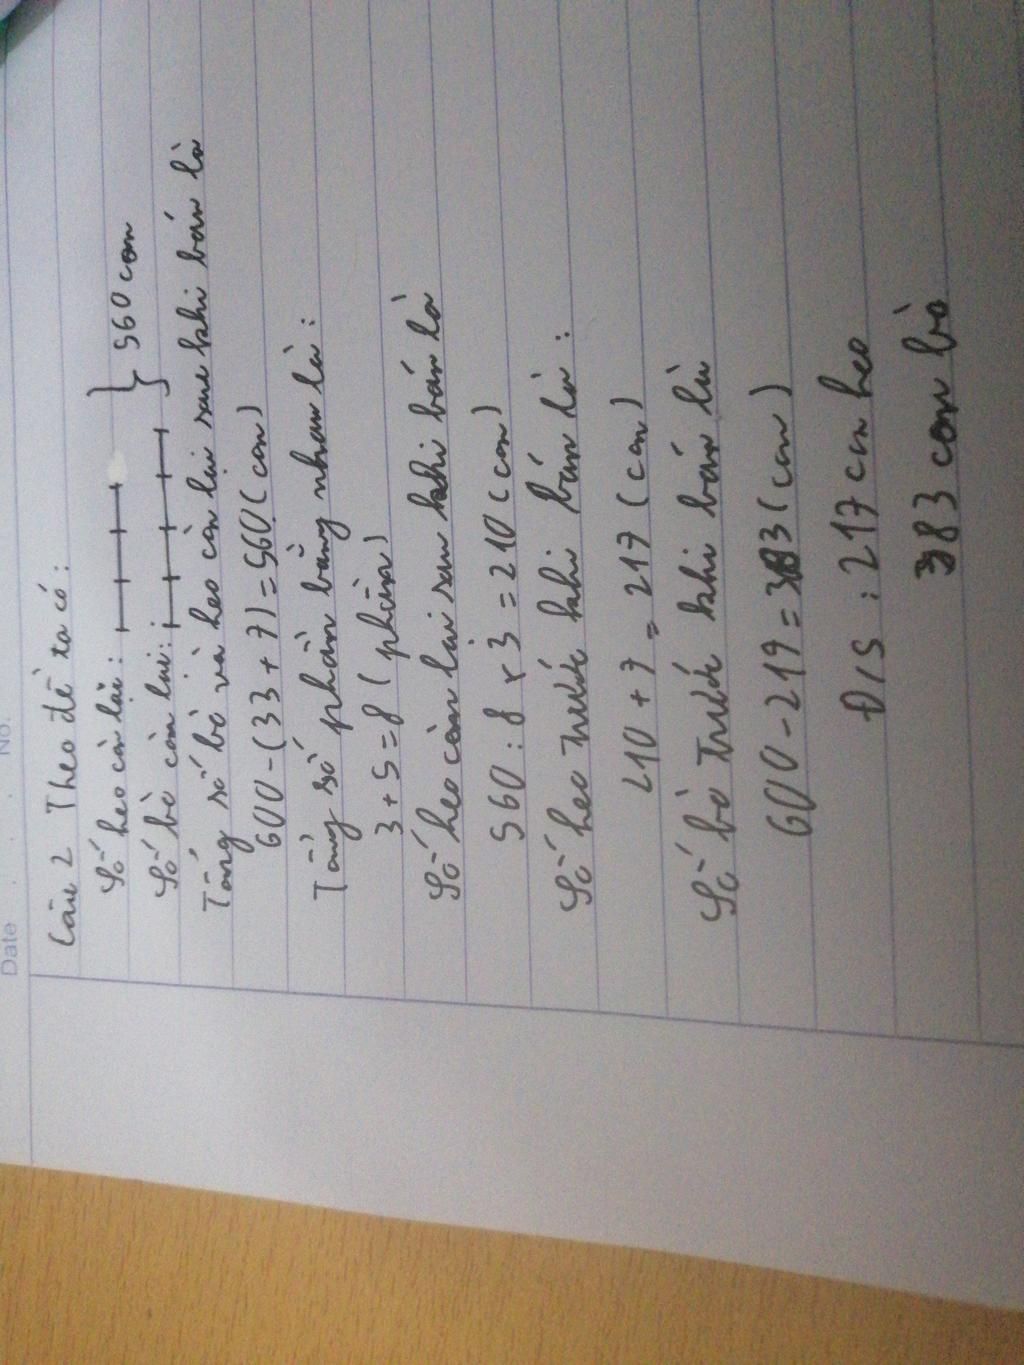 Date No.
Câu 2 Theo đề ta có:
Số heo còn lại:
Số bò còn lại:
} 560 con
Tổng số bò và heo còn lại sau khi bán là
600-(33+7)=560(con)
Tổng số phần bằng nhau là:
3+5=8(phần)
Số heo còn lại sau khi bán là
560:8x3=210(con)
Số heo trước khi bán là:
210+7=217(con)
Số bò trước khi bán là
600-217=383(con)
Đ/S: 217 con heo
383 con bò